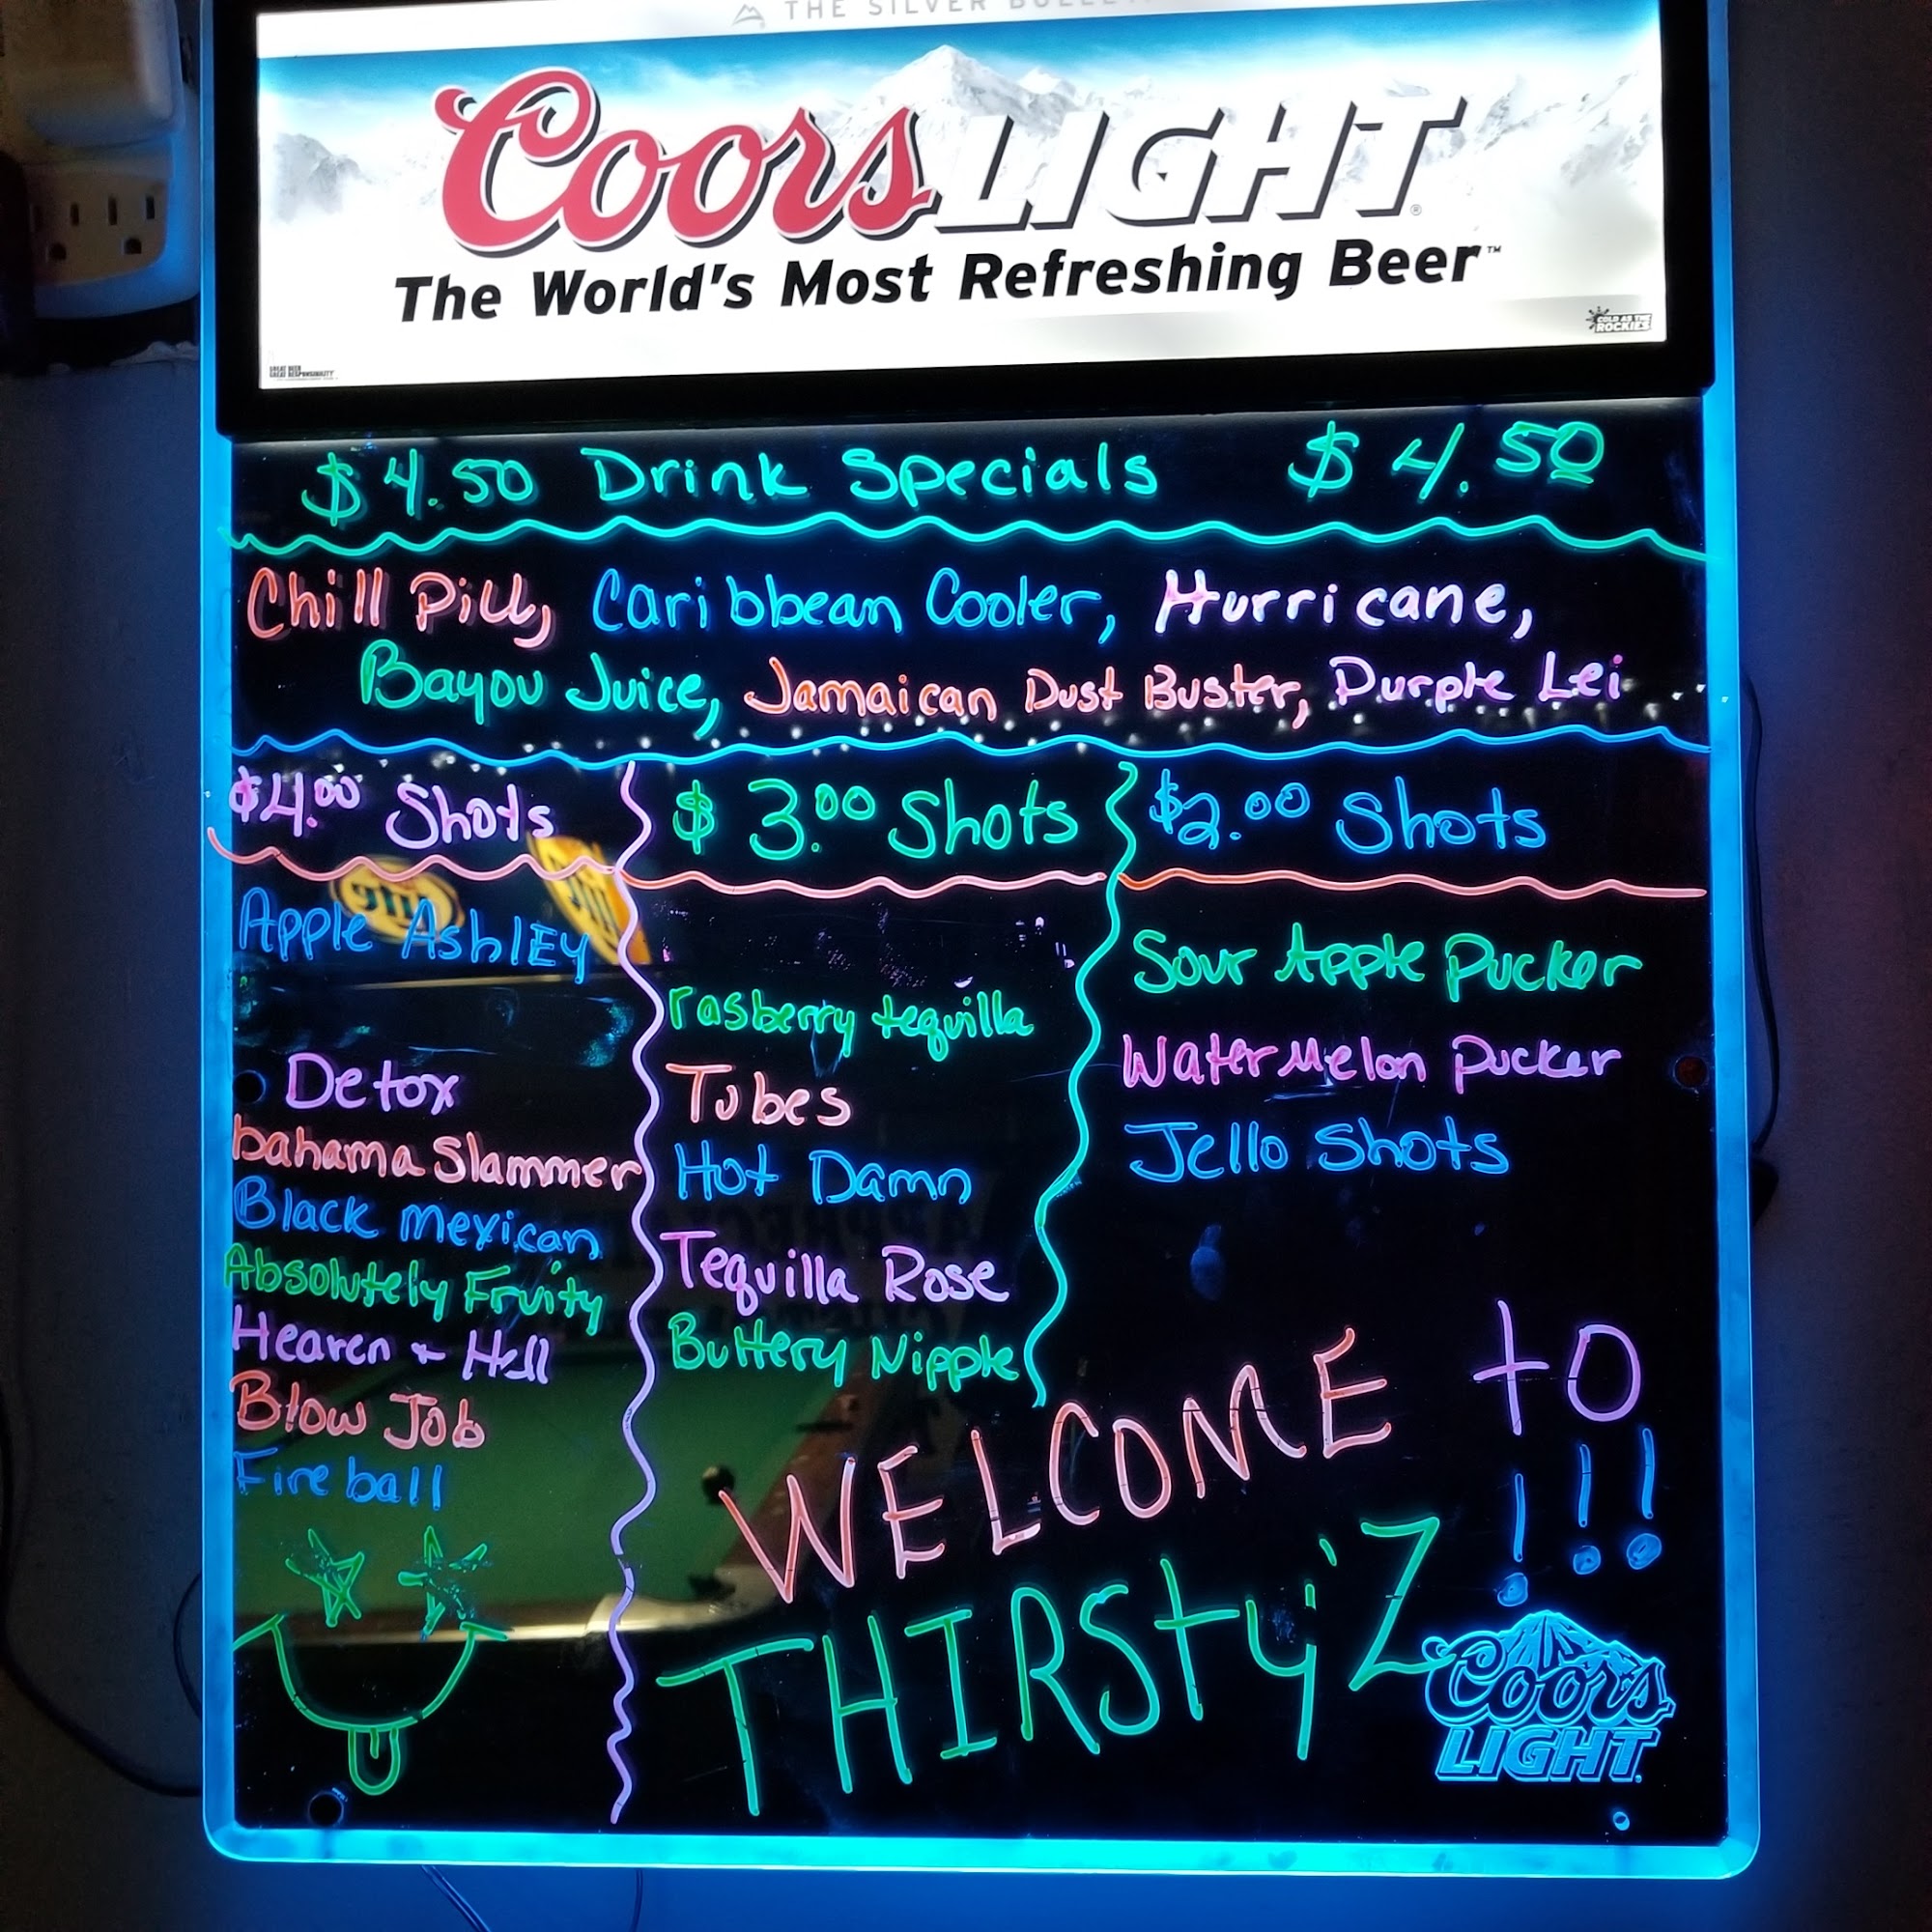 THE SILVER BULLET
Coors LIGHT®
The World's Most Refreshing Beer™
COLD AS THE
ROCKIES
GREAT BEER
GREAT RESPONSIBILITY
$4.50 Drink Specials $4.50
Chill Pill, Caribbean Cooler, Hurricane,
Bayou Juice, Jamaican Dust Buster, Purple Lei
$4.00 Shots
Apple AshlEy
Detox
bahama Slammer
Black mexican
Absolutely Fruity
Heaven & Hell
Blow Job
Fireball
$3.00 Shots
rasberry tequilla
Tubes
Hot Damn
Tequilla Rose
Buttery Nipple
$2.00 Shots
Sour Apple Pucker
WaterMelon Pucker
Jello Shots
WELCOME to
THIRSty'Z !!!
Coors
LIGHT